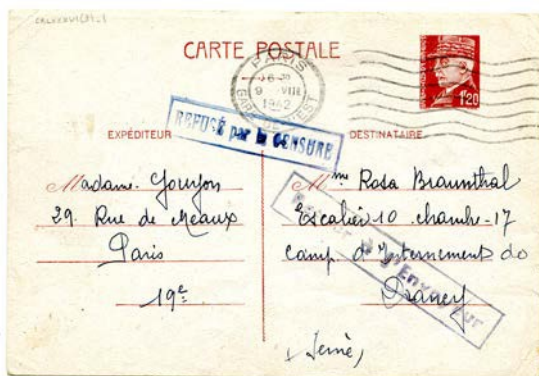 CARTE POSTALE
PARIS
9 VIII
1942
GARE DE L'EST
1F20
REFUSÉ par la CENSURE
EXPÉDITEUR
Madame Goujon
29. Rue de Meaux
Paris
19e
DESTINATAIRE
Mme Rosa Braunthal
Escalier 10 chambre-17
Camp d'Internement de
Drancy
(Seine)
Retour à l'Envoyeur